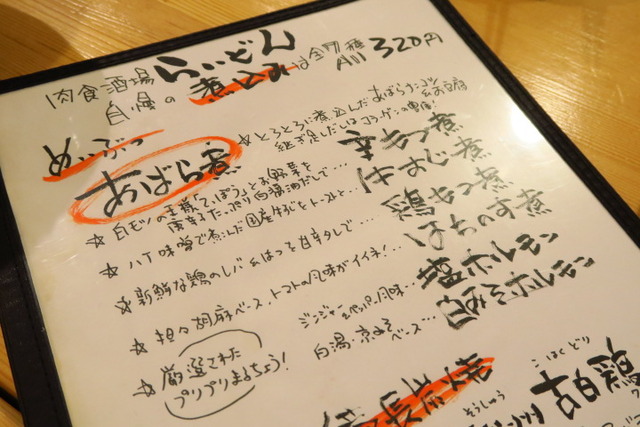 肉食酒場 らいどん
自慢の 煮込みは全7種 All 320円
めいぶつ
あばら煮
☆とろとろに煮込んだあばらナンコツ&お豆腐
継ぎ足しだしはコラーゲンの宝庫!
☆白モツの王様「てっぽう」とお野菜を
唐辛子たっぷり白醤油だしで… 辛もつ煮
☆八丁味噌で煮込んだ国産牛すじをトーストと… 牛すじ煮
☆新鮮な鶏のレバ&はつを甘辛タレで… 鶏もつ煮
☆担々胡麻ベース、トマトの風味がイイネ!… はちのす煮
☆厳選された
プリプリまるちょう!
ジンジャー&ペッパー風味… 塩ホルモン
白湯・京みそベース… 白みそホルモン
こはくどり
古白鶏
そうしゅう